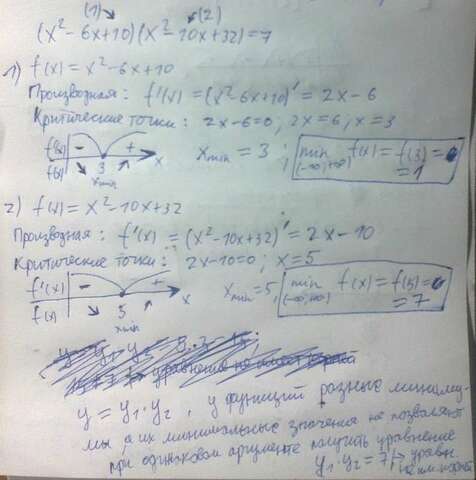 (1) (2)
(x² - 6x + 10)(x² - 10x + 32) = 7
1) f(x) = x² - 6x + 10
Производная: f'(x) = (x² - 6x + 10)' = 2x - 6
Критические точки: 2x - 6 = 0; 2x = 6; x = 3
f'(x) - + x
f(x) 3 xmin
xmin = 3; min f(x) = f(3) =
(-∞; +∞) = 1
2) f(x) = x² - 10x + 32
Производная: f'(x) = (x² - 10x + 32)' = 2x - 10
Критические точки: 2x - 10 = 0; x = 5
f'(x) - + x
f(x) 5 xmin
xmin = 5; min f(x) = f(5) =
(-∞; +∞) = 7
y = y₁·y₂, у функций разные миниму-
мы, а их минимальные значения не позволяют
при одинаковом аргументе получить уравнение
y₁·y₂ = 7, ⇒ уравн.
не им.